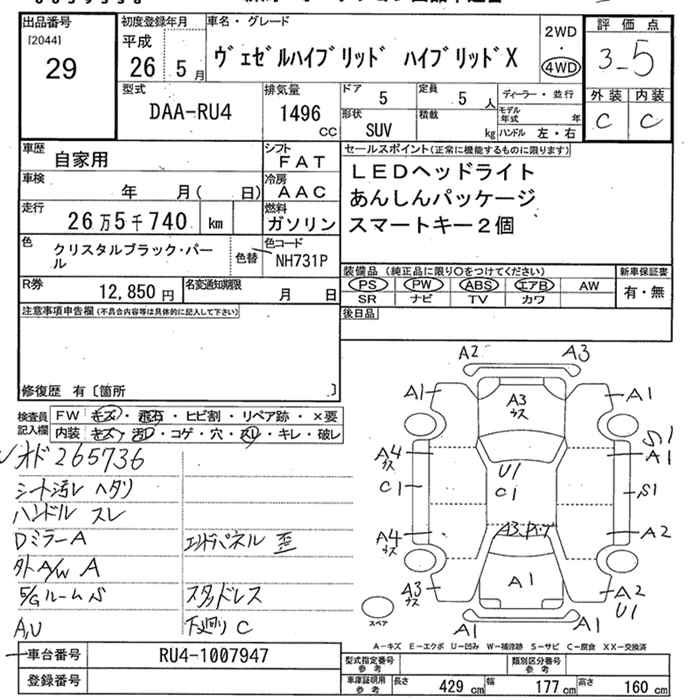 出品番号
[2044]
29
初度登録年月
平成
26 5月
車名・グレード
ヴェゼルハイブリッド ハイブリッドX
2WD
・
4WD
評価点
3-5
外装 内装
C C
型式
DAA-RU4
排気量
1496
CC
ドア
5
定員
5人
ディーラー・並行
モデル年式 年
形状
SUV
積載
kg
ハンドル 左・右
車歴
自家用
シフト
FAT
車検
年 月( 日)
冷房
AAC
走行
26万5千740 km
燃料
ガソリン
色
クリスタルブラック・パール
色替
色コード
NH731P
セールスポイント(正常に機能するものに限ります)
LEDヘッドライト
あんしんパッケージ
スマートキー2個
R券
12,850円
名変通知期限
月 日
装備品(純正品に限り○をつけてください)
PS PW ABS エアB AW
SR ナビ TV カワ
新車保証書
有・無
注意事項申告欄(不具合内容等は具体的に記入して下さい)
後日品
修復歴 有〔箇所 〕
検査員記入欄
FW キズ・飛石・ヒビ割・リペア跡・×要
内装 キズ・汚レ・コゲ・穴・スレ・キレ・破レ
オド265736
シート汚レ ヘタリ
ハンドル スレ
DミラーA
エンドパネル 歪
外A/W A
E/Gルーム S
スタッドレス
A,U
下廻り C
A2 A3
A1 A3 キズ A1
S1
A4 キズ A1
U1
C1 C1 S1
A4 キズ A3 A2
A3 キズ A1 A2
U1
A1 A1
スペア
A-キズ E-エクボ U-凹み W-補修跡 S-サビ C-腐食 XX-交換済
車台番号
RU4-1007947
登録番号
型式指定番号 参考
類別区分番号 参考
車庫証明用 参考
長さ 429 cm
幅 177 cm
高さ 160 cm